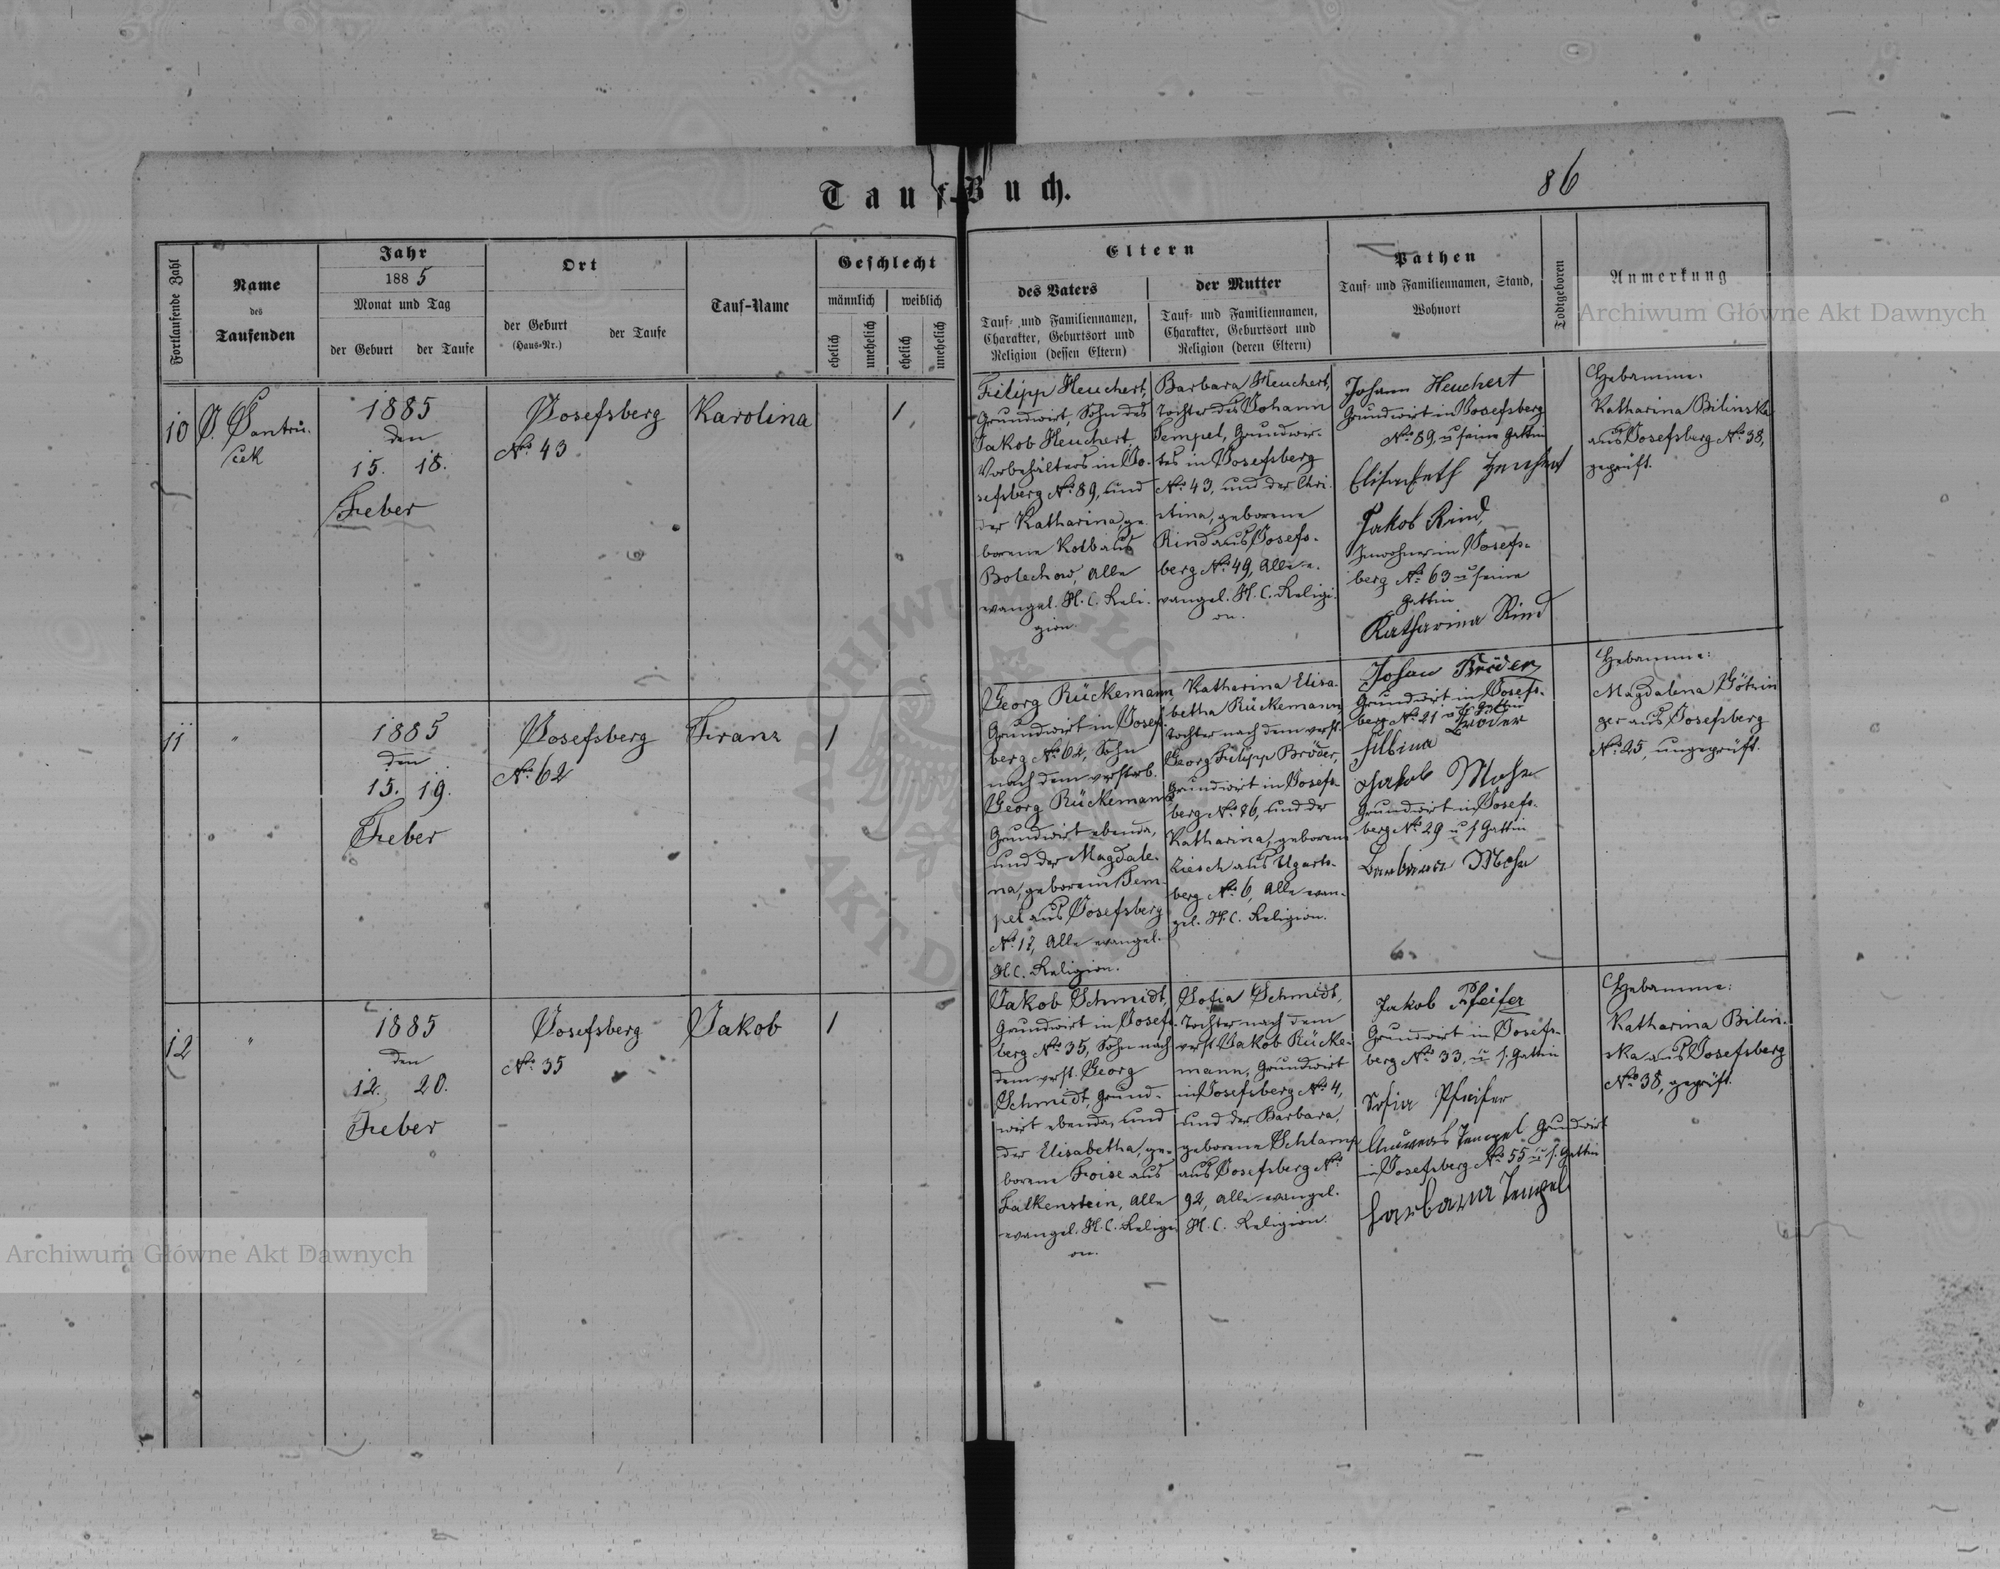 Tauf-Buch.
86
Fortlaufende Zahl
Name
des
Taufenden
Jahr
1885
Monat und Tag
der Geburt
der Taufe
Ort
der Geburt
(Haus-Nr.)
der Taufe
Tauf-Name
Geschlecht
männlich
weiblich
ehelich
unehelich
ehelich
unehelich
Eltern
des Vaters
Tauf- und Familiennamen,
Charakter, Geburtsort und
Religion (dessen Eltern)
der Mutter
Tauf- und Familiennamen,
Charakter, Geburtsort und
Religion (deren Eltern)
Pathen
Tauf- und Familiennamen, Stand,
Wohnort
Todtgeboren
Anmerkung
10
J. Jantru-
cek
1885
den
15. 18.
Feber
Josefsberg
No. 43
Karolina
1
Filipp Heuchert,
Grundwirt, Sohn des
Jakob Heuchert,
Vorbehälters in Jo-
sefsberg No. 89, und
der Katharina, ge-
borene Kolb aus
Bolechow, Alle
evangel. H. C. Reli-
gion.
Barbara Heuchert,
Tochter des Johann
Tempel, Grundwir-
tes in Josefsberg
No. 43, und der Chri-
stina, geborene
Rind aus Josefs-
berg No. 49, Alle e-
vangel. H. C. Religi-
on.
Johann Heuchert
Grundwirt in Josefsberg
No. 89, u seine Gattin
Elisabeth Heuchert
Jakob Rind,
Inwohner in Josefs-
berg No. 63 u seine
Gattin
Katharina Rind
Hebamme:
Katharina Bilinska
aus Josefsberg No. 38,
geprüft.
11
"
1885
den
15. 19.
Feber
Josefsberg
No. 62
Franz
1
Georg Rückemann
Grundwirt in Josefs-
berg No. 62, Sohn
nach dem verstorb.
Georg Rückemann
Grundwirt ebenda,
und der Magdale-
na, geborene Tem-
pel aus Josefsberg
No. 12, Alle evangel.
H. C. Religion.
Katharina Elisa-
betha Rückemann
Tochter nach dem verst.
Georg Filipp Bröder,
Grundwirt in Josefs-
berg No. 86, und der
Katharina, geborene
Liesch aus Ugarts-
berg No. 6, Alle evan-
gel. H. C. Religion.
Johan Bröder
Grundwirt in Josefs-
berg No. 21 u s. Gattin
Filbina Bröder
Jakob Mohr
Grundwirt in Josefs-
berg No. 29 u s. Gattin
Barbara Mohr
Hebamme:
Magdalena Götzin
ger aus Josefsberg
No. 25, ungeprüft.
12
"
1885
den
12. 20.
Feber
Josefsberg
No. 35
Jakob
1
Jakob Schmidt,
Grundwirt in Josefs-
berg No. 35, Sohn nach
dem verst. Georg
Schmidt, Grund-
wirt ebenda, und
der Elisabetha, ge-
borene Froise aus
Falkenstein, Alle
evangel. H. C. Religi-
on.
Sofia Schmidt,
Tochter nach dem
verst. Jakob Rücke-
mann, Grundwirt
in Josefsberg No. 4,
und der Barbara,
geborene Schlamp
aus Josefsberg No.
92, Alle evangel.
H. C. Religion.
Jakob Pfeifer
Grundwirt in Josefs-
berg No. 33, u s. Gattin
Sofia Pfeifer
Andreas Tempel Grundwirt
in Josefsberg No. 55 u s. Gattin
Barbara Tempel
Hebamme:
Katharina Bilin-
ska aus Josefsberg
No. 38, geprüft.
Archiwum Główne Akt Dawnych
Archiwum Główne Akt Dawnych
ARCHIWUM GŁÓWNE AKT DAWNYCH